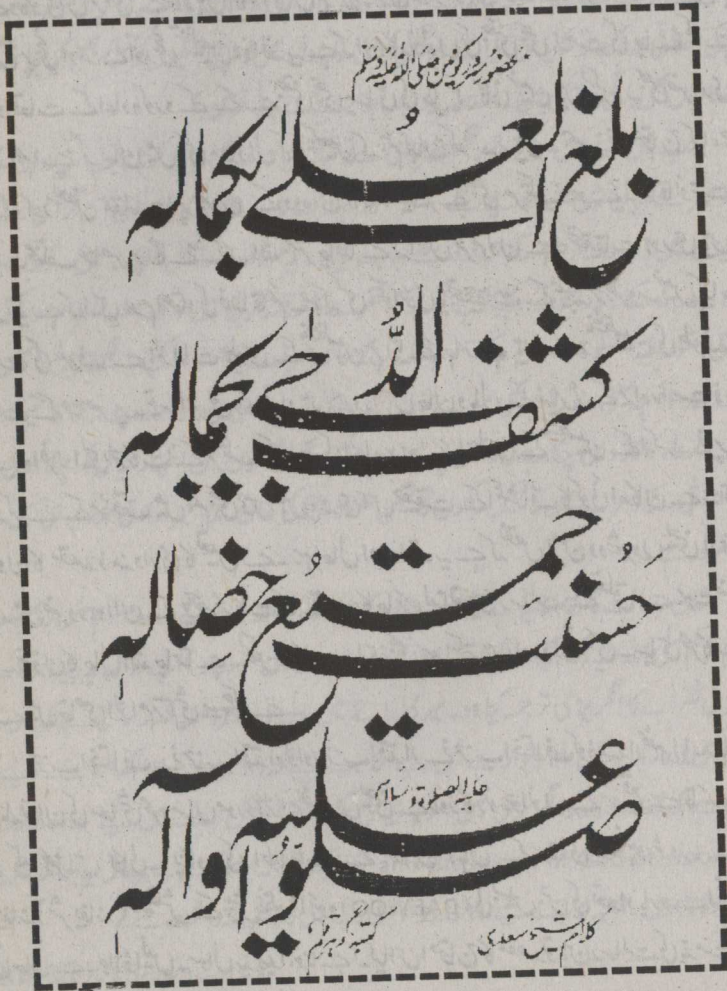 بحضور سرور کونین صلی اللہ علیہ وسلم
بلغ العُلےٰ بکمالہ
کشف الدُّجےٰ بجمالہ
حَسُنَت جمیعُ خصالہ
علیہ الصلوٰۃ والسلام
صلّوا علیہ وآلہ
کلام شیخ سعدی